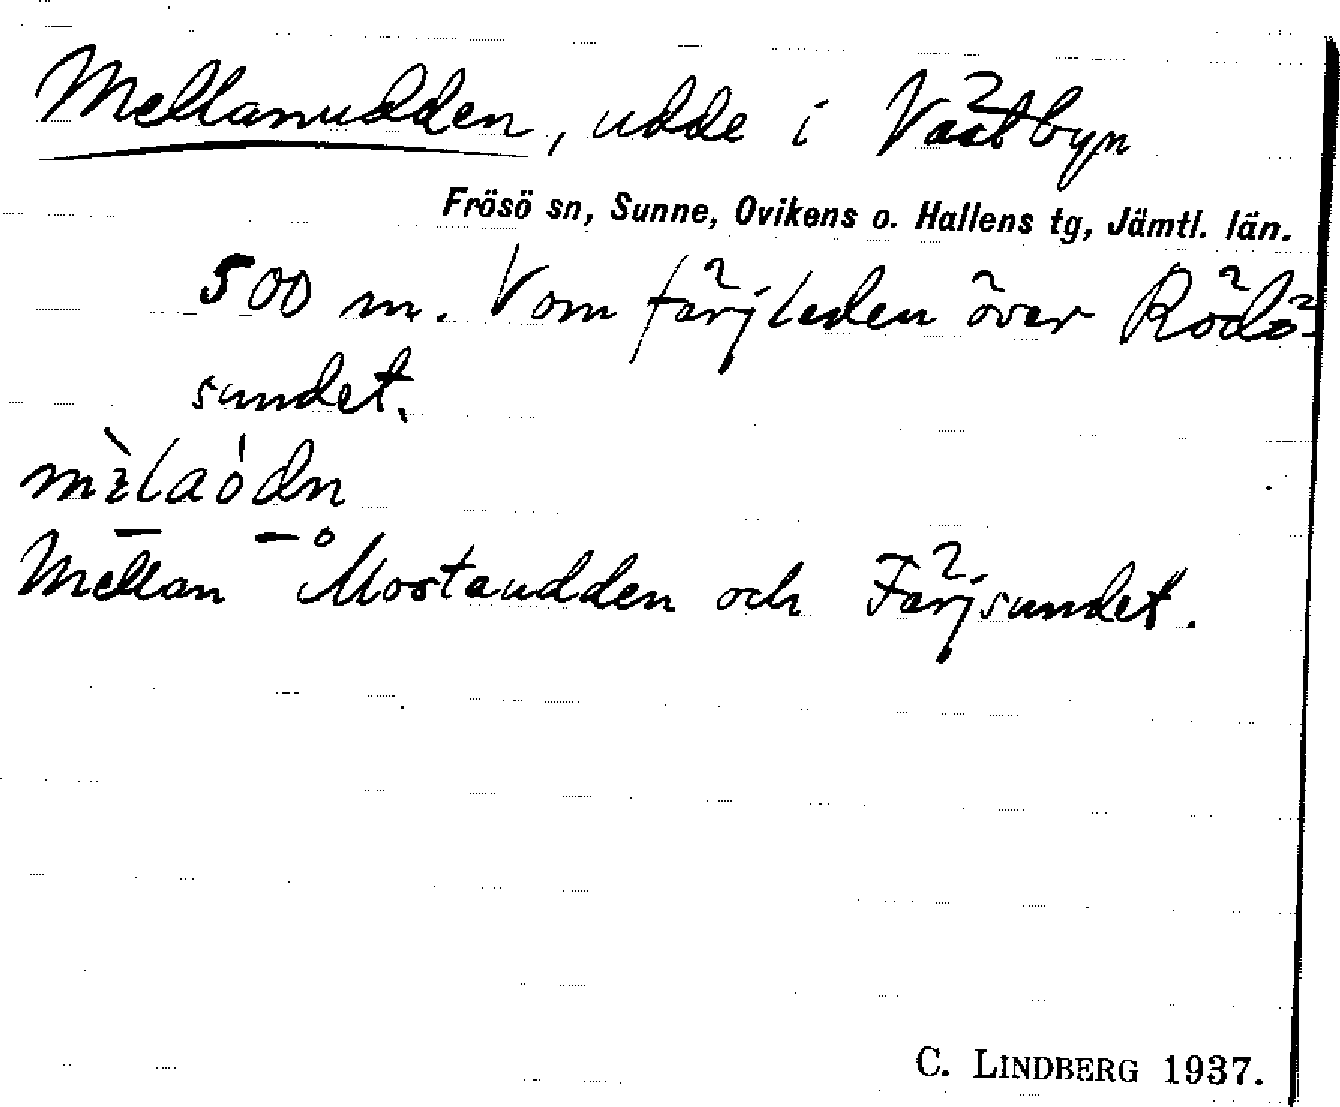 Mellanudden, udde i Västbyn
Frösö sn, Sunne, Ovikens o. Hallens tg, Jämtl. län.
500 m. V om färjleden över Rödö-
sundet.
Mellan Mostaudden och Färjsundet.
C. LINDBERG 1937.